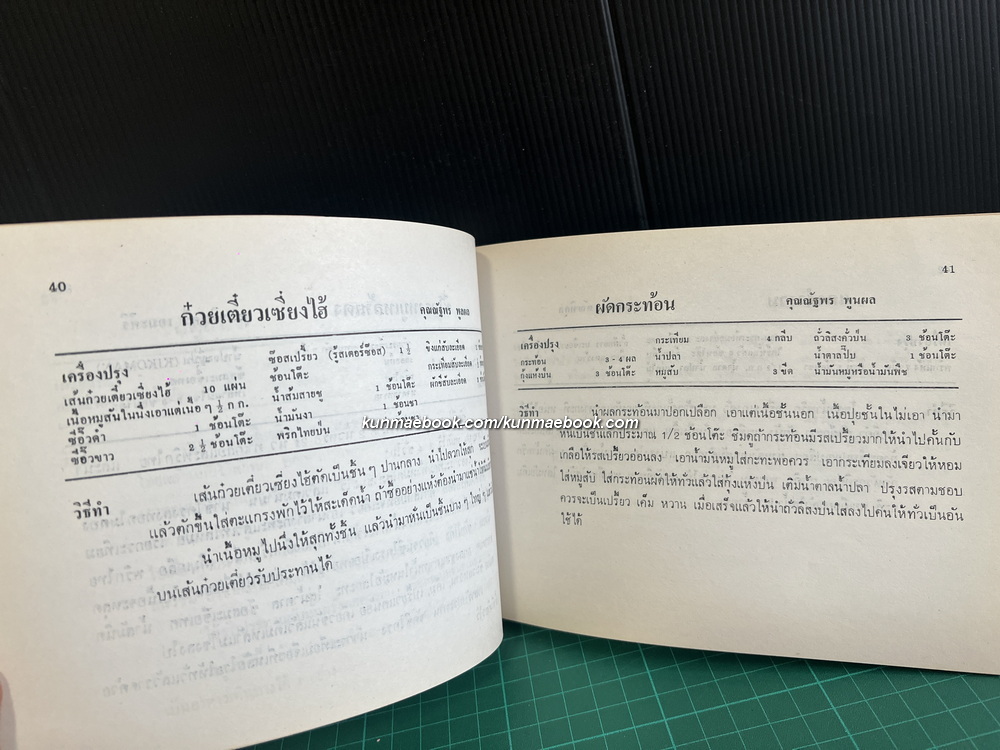 40
ก๋วยเตี๋ยวเซี่ยงไฮ้ คุณณัฐพร พูนผล
เครื่องปรุง
เส้นก๋วยเตี๋ยวเซี่ยงไฮ้ 10 แผ่น
เนื้อหมูสันในนึ่งเอาแต่เนื้อ ๆ ½ ก ก.
ซีอิ๊วดำ 1 ช้อนโต๊ะ
ซีอิ๊วขาว 2 ½ ช้อนโต๊ะ
ซ๊อสเปรี้ยว (รู้สเตอร์ซ๊อส) 1 ½
ช้อนโต๊ะ
น้ำส้มสายชู 1 ช้อนโต๊ะ
น้ำมันงา 1 ช้อนชา
พริกไทยป่น
ขิงแก่สับละเอียด
กระเทียมสับละเอียด
ผักชีสับละเอียด
วิธีทำ เส้นก๋วยเตี๋ยวเซี่ยงไฮ้ตัดเป็นชิ้น ๆ ปานกลาง นำไปลวกให้สุก
แล้วตักขึ้นใส่ตะแกรงพักไว้ให้สะเด็ดน้ำ ถ้าซื้ออย่างแห้งต้องนำมาแช่น้ำ
นำเนื้อหมูไปนึ่งให้สุกทั้งชิ้น แล้วนำมาหั่นเป็นชิ้นบาง ๆ ใหญ่ ๆ
บนเส้นก๋วยเตี๋ยวรับประทานได้
41
ผัดกระท้อน คุณณัฐพร พูนผล
เครื่องปรุง
กระท้อน 3 - 4 ผล
กุ้งแห้งป่น 3 ช้อนโต๊ะ
กระเทียม 4 กลีบ
น้ำปลา
หมูสับ 3 ขีด
ถั่วลิสงคั่วป่น 3 ช้อนโต๊ะ
น้ำตาลปี๊บ 1 ช้อนโต๊ะ
น้ำมันหมูหรือน้ำมันพืช
วิธีทำ นำผลกระท้อนมาปอกเปลือก เอาแต่เนื้อชั้นนอก เนื้อปุยชั้นในไม่เอา นำมา
หั่นเป็นชิ้นเล็กประมาณ 1/2 ช้อนโต๊ะ ชิมดูถ้ากระท้อนมีรสเปรี้ยวมากให้นำไปคั้นกับ
เกลือให้รสเปรี้ยวอ่อนลง เอาน้ำมันหมูใส่กะทะพอควร เอากระเทียมลงเจียวให้หอม
ใส่หมูสับ ใส่กระท้อนผัดให้ทั่วแล้วใส่กุ้งแห้งป่น เติมน้ำตาลน้ำปลา ปรุงรสตามชอบ
ควรจะเป็นเปรี้ยว เค็ม หวาน เมื่อเสร็จแล้วให้นำถั่วลิสงป่นใส่ลงไปคนให้ทั่วเป็นอัน
ใช้ได้
kunmaebook.com/kunmaebook.com